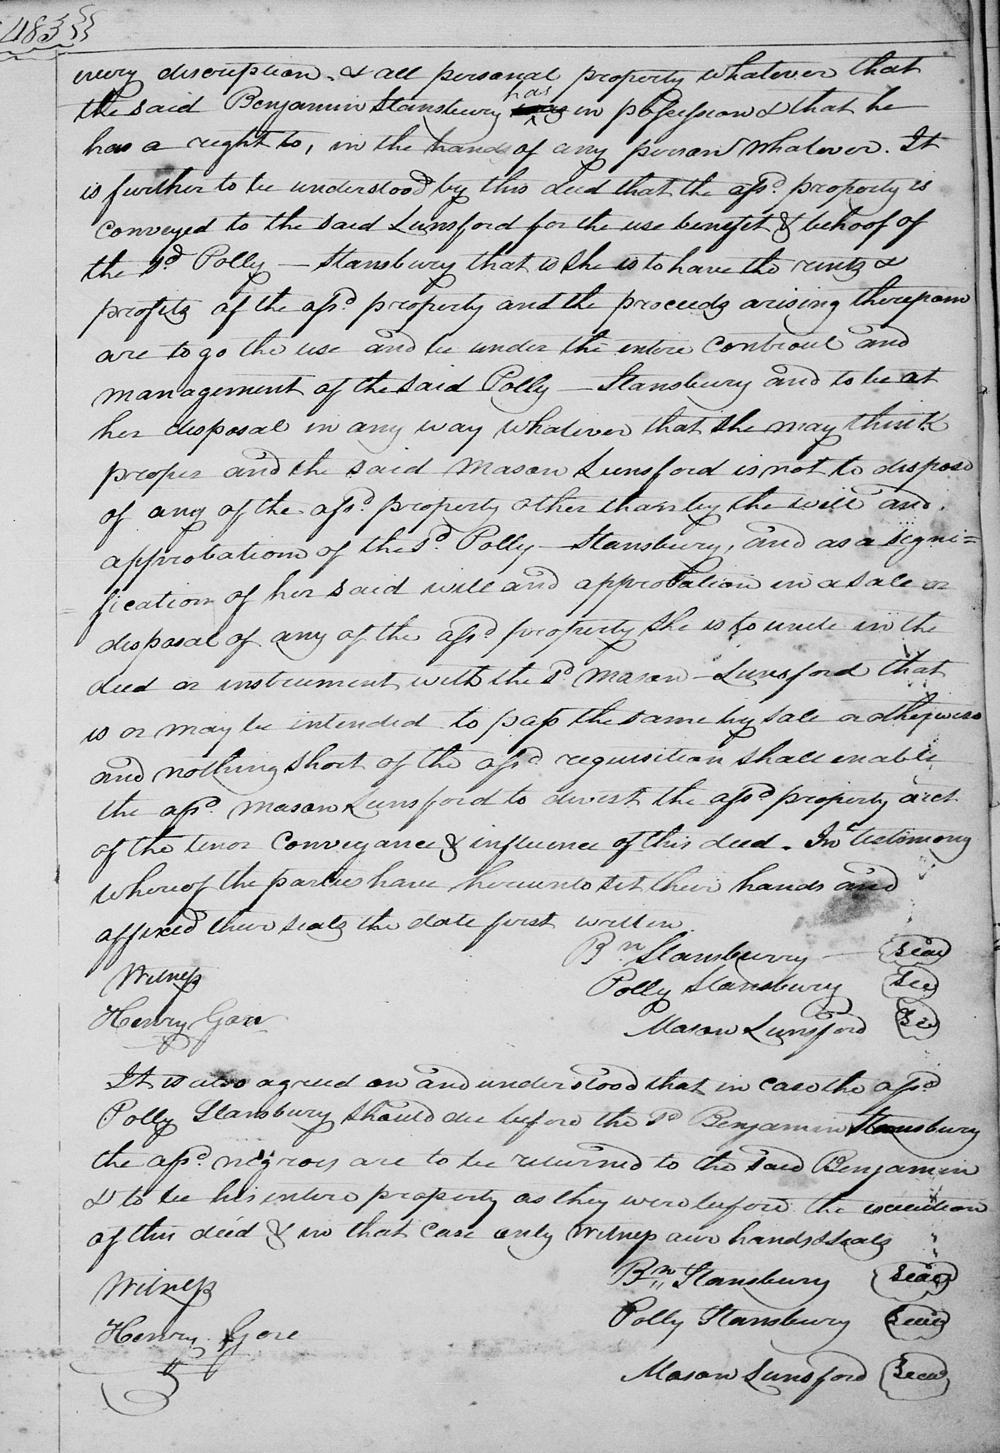 483
every discription & all personal property whatever that
the said Benjamin Stansbury has in possession & that he
has a right to, in the hands of any person whatever. It
is further to be understood by this deed that the afsd. property is
conveyed to the said Lunsford for the use benefit & behoof of
the sd Polly — Stansbury that is she is to have the rents &
profits of the afsd. property and the proceeds arising therefrom
are to go the use and be under the entire controul and
management of the said Polly — Stansbury and to be at
her disposal in any way whatever that she may think
proper and the said Mason Lunsford is not to dispose
of any of the afsd. property other than by the will and
approbation of the sd. Polly — Stansbury, and as a signi=
fication of her said will and approbation in a sale or
disposal of any of the afsd property she is to unite in the
deed or instrument with the sd. Mason — Lunsford that
is or may be intended to pass the same by sale or otherwise
and nothing short of the afsd requisition shall enable
the afsd. Mason Lunsford to divest the afsd property
of the tenor conveyance & influence of this deed. In testimony
whereof the parties have hereunto set their hands and
affixed their seals the date first written
Bn Stansburry seal
Witness Polly Stansbury
Henry Gore Mason Lunsford
It is also agreed on and understood that in case the afsd
Polly Stansbury should die before the sd Benjamin Stansbury
the afsd. negroes are to be returned to the said Benjamin
& to be his intire property as they were before the execution
of this deed & in that case only Witness our hands & seals
Bn Stansbury seal
Witness Polly Stansbury seal
Henry Gore
Mason Lunsford seal